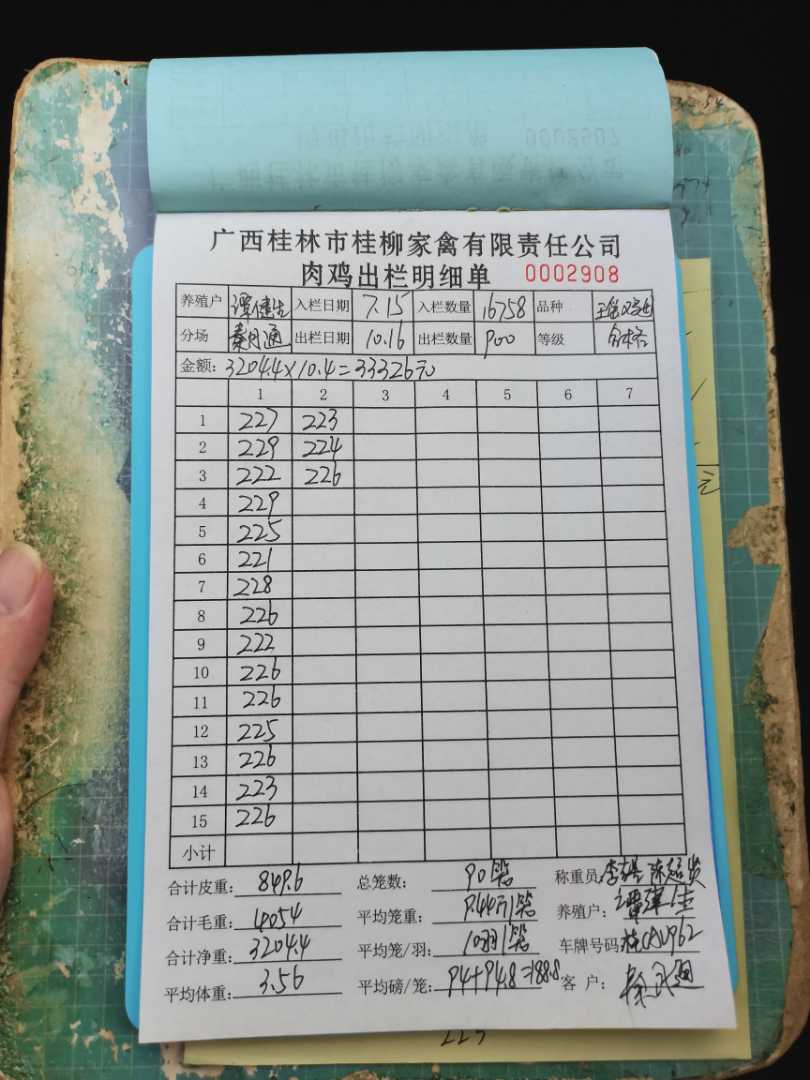 广西桂林市桂柳家禽有限责任公司
肉鸡出栏明细单 0002908
养殖户 入栏日期 7.15 入栏数量 16758 品种
分场 秦月通 出栏日期 10.16 出栏数量 900 等级 合格
金额: 3204.4×10.4=33326元
1 2 3 4 5 6 7
1 227 223
2 229 224
3 222 226
4 229
5 225
6 221
7 228
8 226
9 222
10 226
11 226
12 225
13 226
14 223
15 226
小计
合计皮重: 849.6 总笼数: 90笼 称重员:
合计毛重: 4054 平均笼重: 9.44 养殖户:
合计净重: 3204.4 平均笼/羽: 10羽/笼 车牌号码
平均体重: 3.56 平均磅/笼: 94+94.8=188.8 客 户: